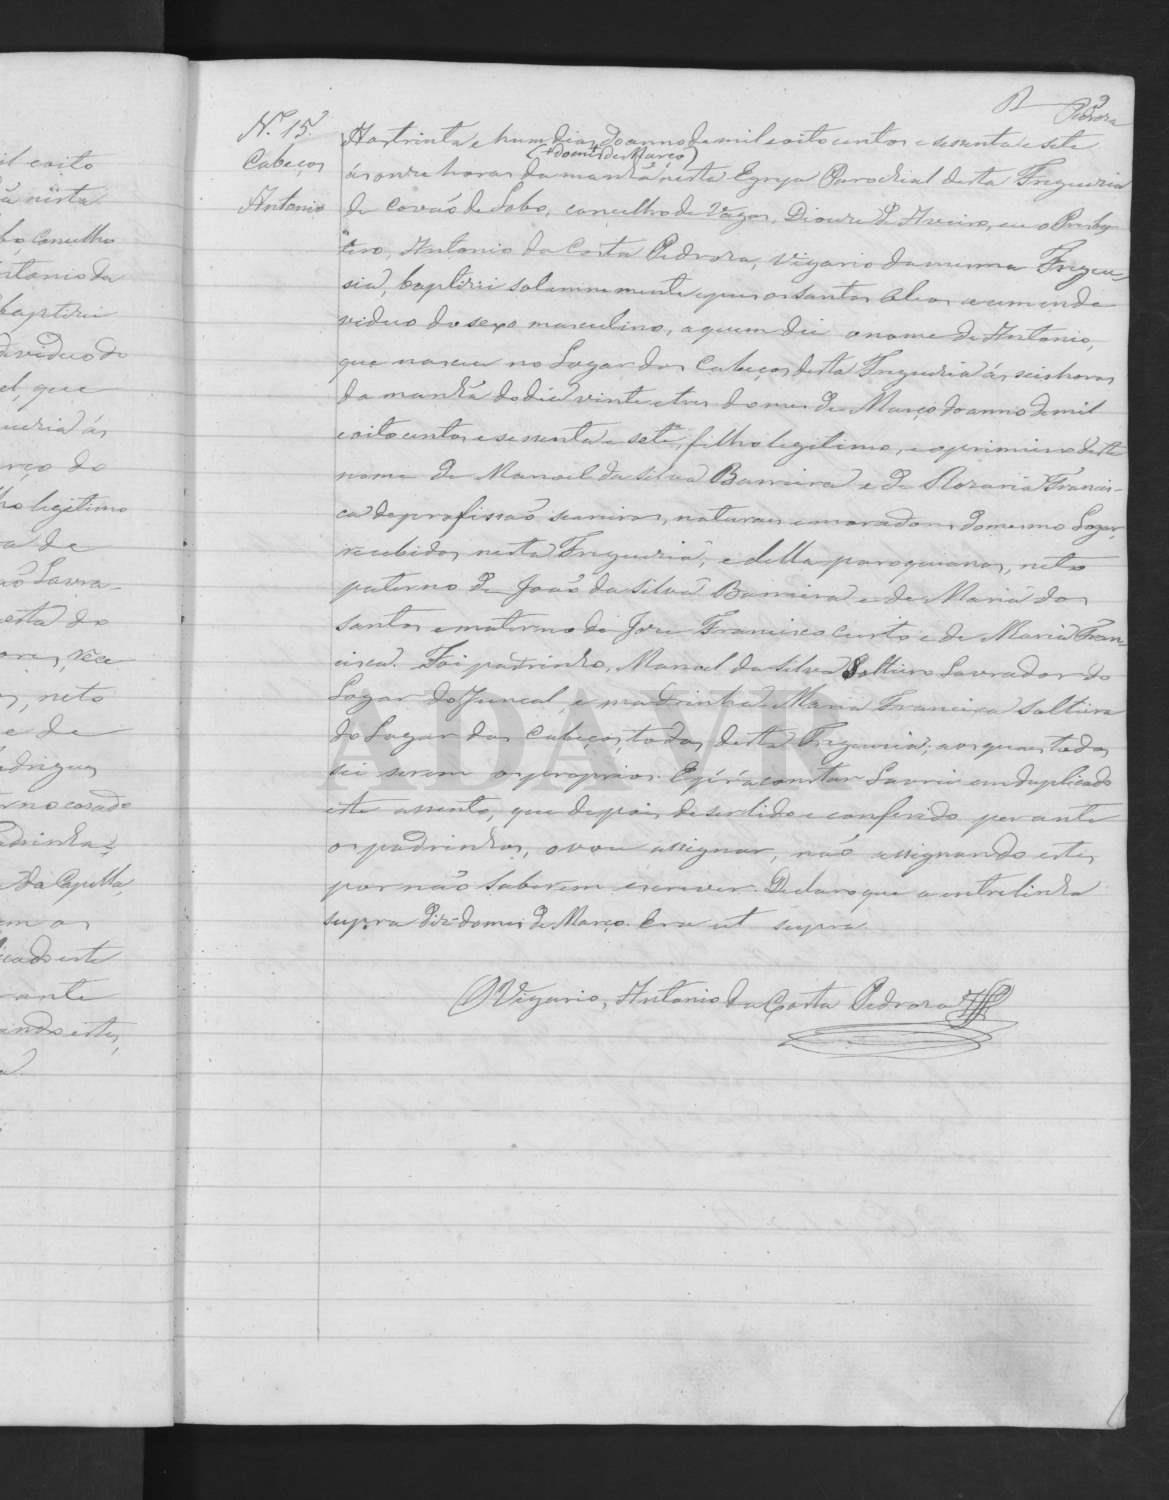 9
Pedrora
N.º 15.
Cabeços
Antonio
Aos trinta e hum dias do anno de mil e oito centos e sessenta e sete
(do mes de Março)
ás onze horas da manhã nesta Egreja Parochial desta Freguezia
de Covão de Lobo, concelho de Vagos, Diocese de Aveiro, eu o Presby-
tero, Antonio da Costa Pedrora, Vigario da mesma Fregue-
sia, baptizei solemnemente e puz os santos oleos a um endi
viduo do sexo masculino, a quem dei o nome de Antonio,
que nasceu no Logar dos Cabeços desta Freguezia ás seis horas
da manhã do dia vinte e tres do mes de Março do anno de mil
e oito centos e sessenta e sete, filho legitimo, e o primeiro deste
nome de Manoel da Silva Barreira e de Rozaria Francis-
ca de profissão seareiros, naturaes e moradores do mesmo Logar,
recebidos nesta Freguezia, e della paroquianos, neto
paterno de João da Silva Barreira e de Maria dos
Santos e materno de Joze Francisco Curto e de Maria Fran-
cisca. Foi padrinho, Manoel da Silva Solteiro Lavrador do
Logar do Juncal, e madrinha Maria Francisca Solteira
do Logar dos Cabeços, todos desta Freguezia; aos quaes todos
sei serem os proprios. E p.ª constar Lavrei em duplicado
este assento, que depois de ser lido e conferido perante
os padrinhos, o vou assignar, não assignando estes
por não saberem escrever. Declaro que a entrelinha
supra diz-do mes de Março. Era ut supra
O Vigario, Antonio da Costa Pedrora
ADAVR
il e oito
ã nésta
bo, Concelho
ntonio da
baptizei
dividuo do
el, que
uezia ás
rço do
ho legitimo
a de
ão Lavra-
esta do
ores, rece
s, neto
e de
odrigues
rno casado
adrinha
da Capella
em os
licado este
ante
ando estes,
a